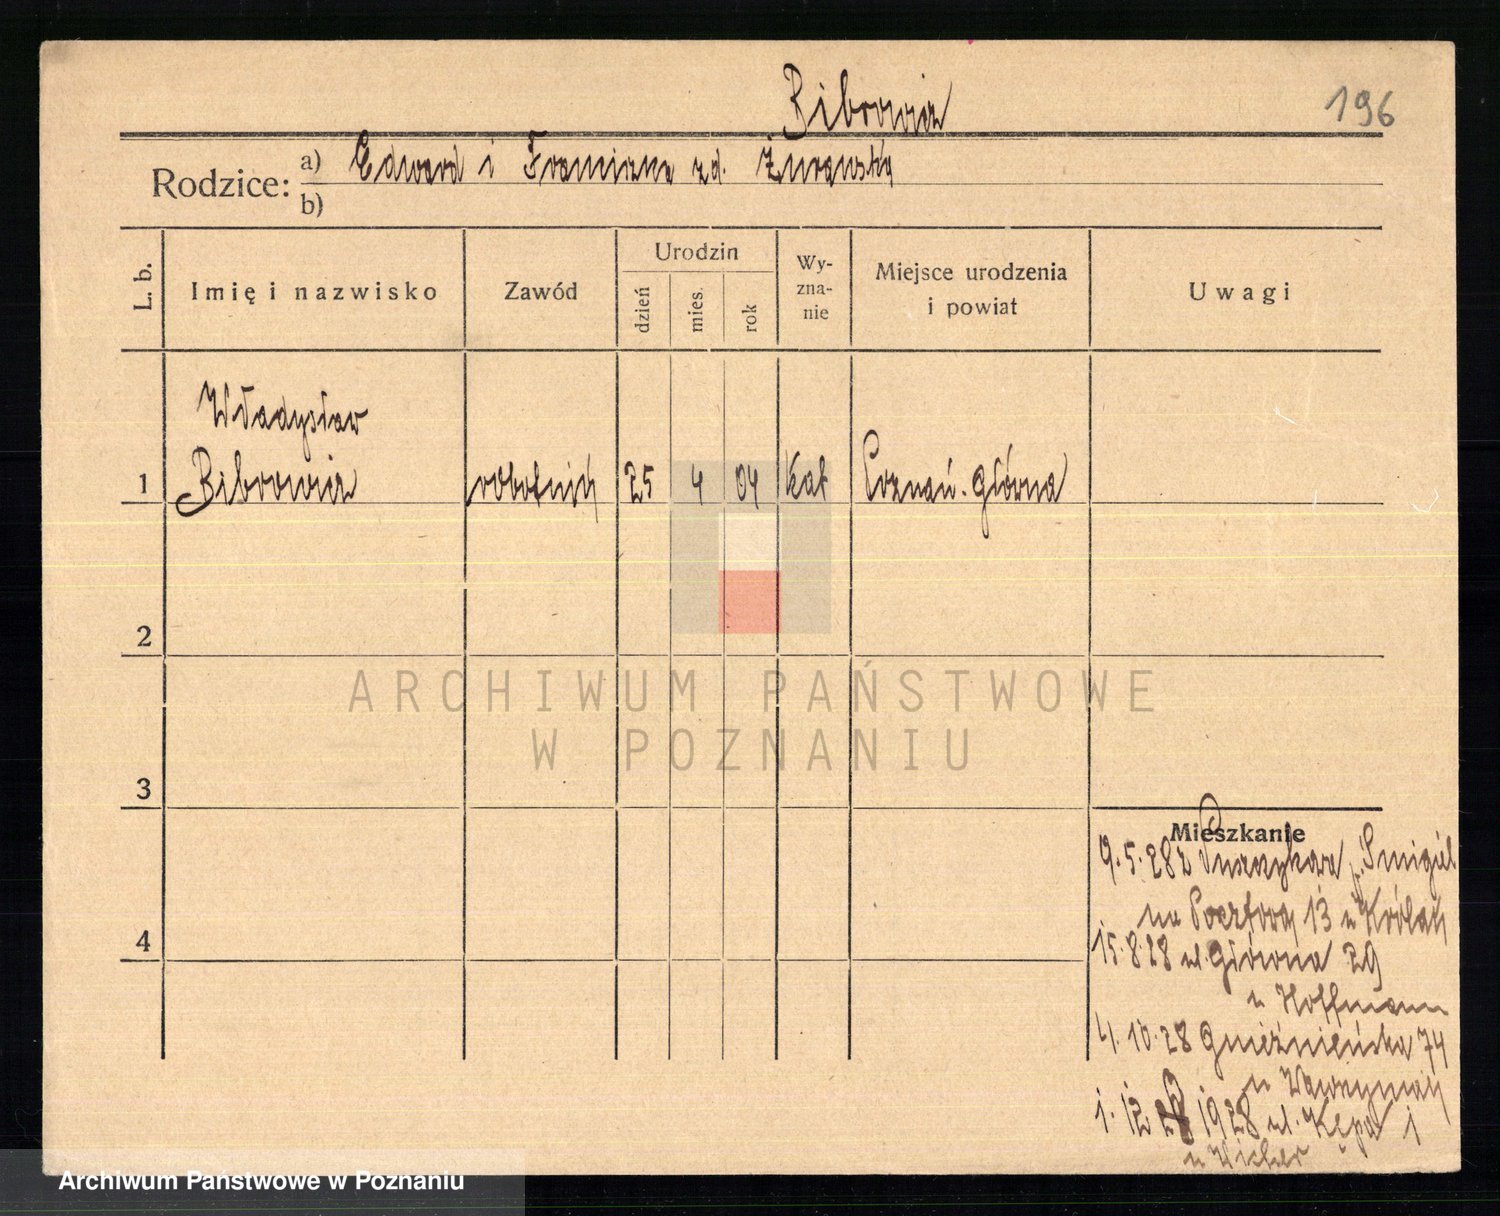 Bibrowicz
196
Rodzice:
a) Edward i Franciszka zd. Żurawska
b)
L. b.
Imię i nazwisko
Zawód
Urodzin
dzień
mies.
rok
Wy-
zna-
nie
Miejsce urodzenia
i powiat
Uwagi
Władysław
1 Bibrowicz robotnik 25 4 04 kat Poznań-Główna
2
ARCHIWUM PAŃSTWOWE
W POZNANIU
3
Mieszkanie
9.5.28 z Puszczykowa p. Śmigiel
na Pocztową 13 u Królak
4
15.8.28 ul. Główna 29
u Hoffmann
4.10.28 Gnieźnieńska 74
u Wawrzyniak
1.12 1928 ul. Kępa 1
u
Archiwum Państwowe w Poznaniu